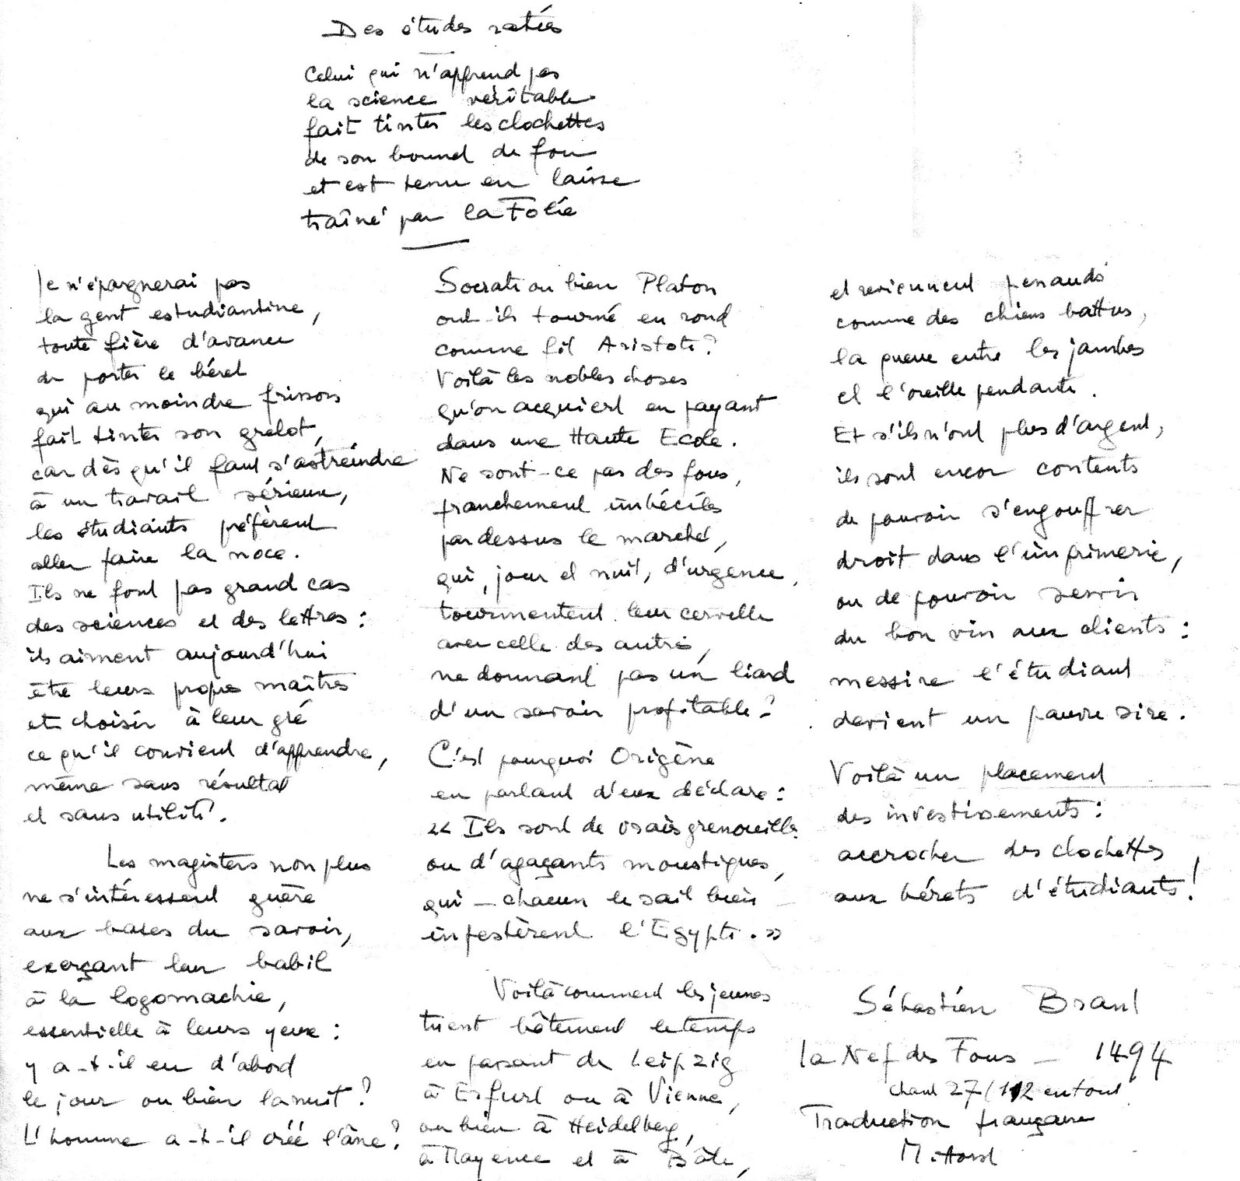 Des études ratées
Celui qui n'apprend pas
la science véritable
fait tinter les clochettes
de son bonnet de fou
et est tenu en laisse
traîné par la Folie
Je n'épargnerai pas
la gent estudiantine,
toute fière d'avance
de porter le béret
qui au moindre frisson
fait tinter son grelot,
car dès qu'il faut s'astreindre
à un travail sérieux,
les étudiants préfèrent
aller faire la noce.
Ils ne font pas grand cas
des sciences et des lettres :
ils aiment aujourd'hui
être leurs propres maîtres
et choisir à leur gré
ce qu'il convient d'apprendre,
même sans résultat
et sans utilité.
Les magisters non plus
ne s'intéressent guère
aux bases du savoir,
exerçant leur babil
à la logomachie,
essentielle à leurs yeux :
y a-t-il eu d'abord
le jour ou bien la nuit ?
L'homme a-t-il créé l'âne ?
Socrate ou bien Platon
ont-ils tourné en rond
comme fit Aristote ?
Voilà les nobles choses
qu'on acquiert en payant
dans une Haute Ecole.
Ne sont-ce pas des fous,
franchement imbéciles
par dessus le marché,
qui, jour et nuit, d'urgence,
tourmentent leur cervelle
avec celle des autres,
ne donnant pas un liard
d'un savoir profitable ?
C'est pourquoi Origène
en parlant d'eux déclare :
« Ils sont de vrais grenouilles
ou d'agaçants moustiques,
qui – chacun le sait bien –
infestèrent l'Egypte. »
Voilà comment les jeunes
tuent bêtement le temps
en passant de Leipzig
à Erfurt ou à Vienne,
ou bien à Heidelberg,
à Mayence et à Bâle,
et reviennent penauds
comme des chiens battus,
la queue entre les jambes
et l'oreille pendante.
Et s'ils n'ont plus d'argent,
ils sont encor contents
de pouvoir s'engouffrer
droit dans l'imprimerie,
ou de pouvoir servir
du bon vin aux clients :
messire l'étudiant
devient un pauvre sire.
Voilà un placement
des investissements :
accrocher des clochettes
aux bérets d'étudiants !
Sébastien Brant
la Nef des Fous – 1494
chant 27/112 en tout
Traduction française
M. Horst